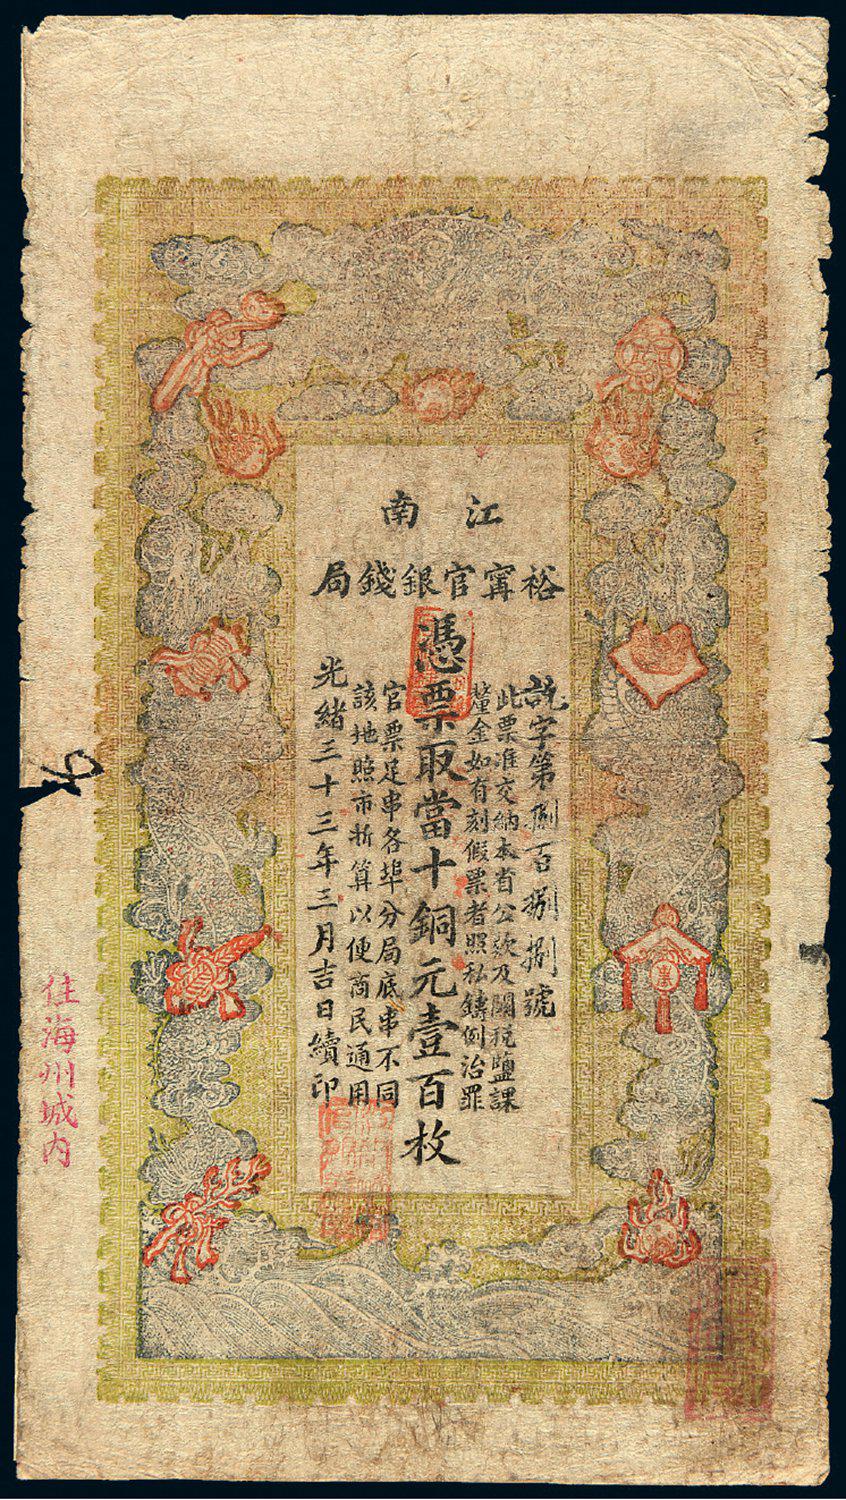 江南
裕甯官銀錢局
説字第捌百捌捌號
此票准交納本省公欵及關税鹽課
釐金如有刻假票者照私鑄例治罪
憑票取當十銅元壹百枚
官票足串各埠分局底串不同
該地照市折算以便商民通用
光緒三十三年三月吉日續印
住海州城内